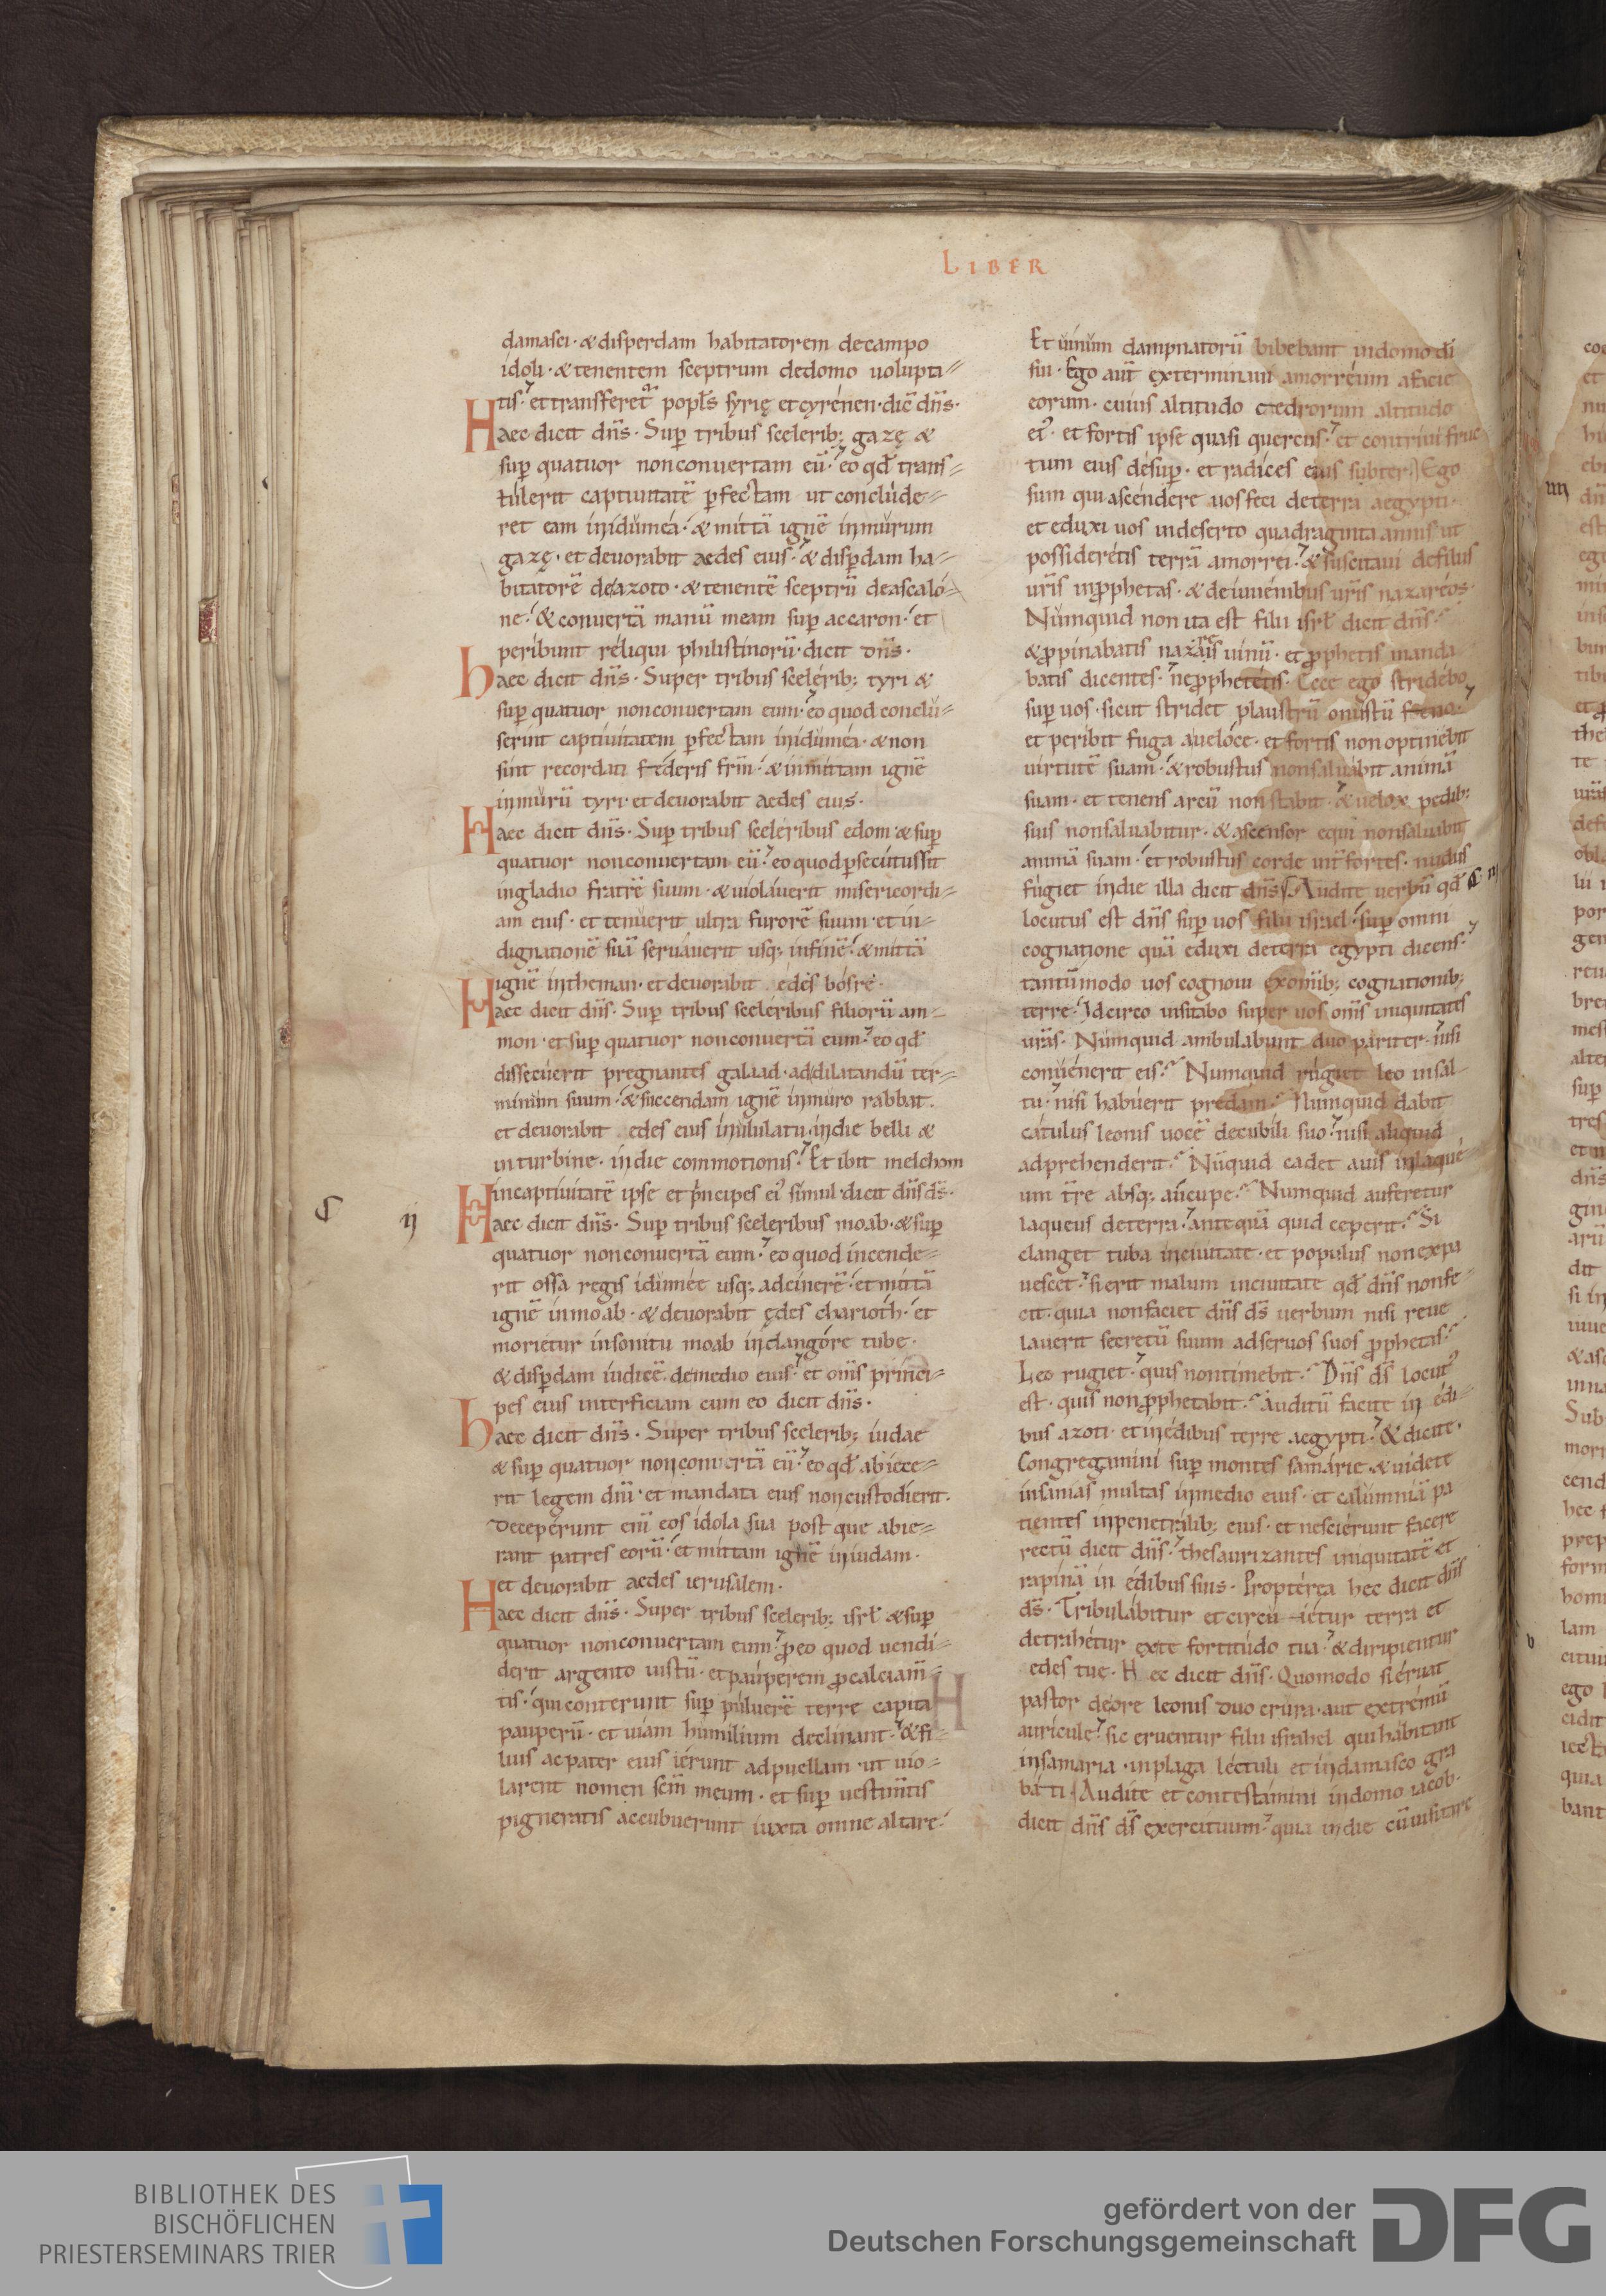 LIBER
damasci · & disperdam habitatorem de campo
idoli · & tenentem sceptrum de domo uolupta//
tis · et transferet̄ popl̄s syrię et cyrénen · dic̄ dn̄s ·
Haec dicit dn̄s · Sup̄ tribus scelerib; gazę &
sup̄ quatuor non conuertam eū · eo qđ trans//
túlerit captiuitatē ꝑfectam ut conclúde//
ret eam in idúméa · & mittā ignē in múrum
gazę · et deuorabit aedes eius · & disꝑdam ha//
bitatorē de azoto · & tenentē sceptrū de ascaló//
ne · & conuertā manū meam sup̄ accaron · et
peribunt réliqui philistinorū · dicit dn̄s ·
haec dicit dn̄s · Super tribus scelérib; tyri &
sup̄ quatuor non conuertam eum · eo quod conclú//
serint captiuitatem ꝑfectam in idúméa · & non
sint recordati féderis frm̄ · & inmittam ignē
in múrū tyri · et deuorabit aedes eius ·
Haec dicit dn̄s · Sup̄ tribus sceléribus edom · & sup̄
quatuor non conuertam eū · eo quod ꝑsecutus sit
in gladio fratrē suum · & uioláuerit misericordi//
am eius · et tenuerit ultra furorē suum · et in//
dignationē suā seruáuerit usq; in finē · & mittā
ignē in theman · et deuorabit edes bósre ·
Haec dicit dn̄s · Sup̄ tribus sceléribus filiorū am//
mon · et sup̄ quatuor non conuertā eum · eo qđ
dissecúerit pregnantes galaad · ad dilatandū ter//
minum suum · & succendam ignē in muro rabbat ·
et deuorabit edes eius in ululatu · in die belli &
in turbine · in die commotionis · Et ibit melchom
in captiuitatē ipse et pⁱncipes ei' simul · dicit dn̄s ds̄ ·
C ij Haec dicit dn̄s · Sup̄ tribus sceleribus moab · & sup̄
quatuor non conuertā eum · eo quod incende//
rit ossa regis idúmée usq; ad cinerē · et mittā
ignē in moab · & deuorabit ędes charioth · et
moriétur in sonitu moab in clangóre tube ·
& disꝑdam iudicē de medio eius · et om̄s princi//
pes eius interficiam cum eo dicit dn̄s ·
haec dicit dn̄s · Super tribus scelerib; iudae
& sup̄ quatuor non conuertā eū · eo qđ abiece//
rit legem dn̄i · et mandata eius non custodierit ·
decepérunt eni̅ eos idola sua post que abie//
rant patres eorū · et mittam ignē in iudam ·
et deuorabit aedes ierusalem ·
Haec dicit dn̄s · Super tribus scelerib; isrł & sup̄
quatuor non conuertam eum · ꝓ eo quod uendi//
derit argento iustū · et paúperem ꝓ calciam̄//
tis · qui conterunt sup̄ púluerē terre capita
pauperū · et uiam humilium declinant · & fi//
lius ac pater eius iérunt ad puellam · ut uio//
larent nomen sc̄m meum · et sup̄ uestim̄tis
pigneratis accubuerunt iuxta omne altare ·
Et uinum dampnatorū bibebant in domo di
sui · Ego aut̄ exterminaui amorréum a facie
eorum · cuius altitudo cedrorum altitudo
ei' · et fortis ipse quasi quercus · et contriui fruc
tum eius désup̄ · et radíces eius subter · Ego
sum qui ascéndere uos feci de terra aegypti ·
et eduxi uos in deserto quadraginta annis ut
possiderétis terrā amorrei · & suscitaui de filiis
ur̄is in ꝓphetas · & de iuuénibus ur̄is nazaréos ·
Numquid non ita est filii isrł dicit dn̄s ·
& ꝓpinabatis nazar̄is uinū · et ꝓphetis manda
batis dicentes · ne ꝓphetétis · Ecce ego stridébo
sup̄ uos · sicut stridet plaustrū onústū feno ·
et peribit fuga a uelóce · et fortis non optinébit
uirtutē suam · & robustus non saluábit animā
suam · et tenens arcū non stabit · & uelox pedib;
suis non saluabitur · & ascensor equi non saluabit
animā suam · et robustus corde int̄ fortes · nudus
fúgiet in die illa dicit dn̄s · Audite uerbū qđ C iij
locutus est dn̄s sup̄ uos filii israel · sup̄ omni
cognatione quā eduxi de terra egypti dicens ·
tantūmodo uos cognoui ex om̄ib; cognationib;
terre · Idcirco uisitabo super uos om̄s iniquitates
ur̄as · Numquid ambulabunt duo páriter · nisi
conuénerit eis · Numquid rúgiet leo in sal
tu · nisi habúerit predam · Numquid dabit
cátulus leonis uocē de cubíli suo · nisi aliquid
adprehenderit · Nūquid cadet auis in laqué
um tr̄e absq; aúcupe · Numquid auferetur
laqueus de terra · antequā quid ceperit · Si
clanget tuba in ciuitate · et populus non expa
uescet · si erit malum in ciuitate qđ dn̄s non fe//
cit · quia non faciet dn̄s ds̄ uerbum nisi reue
lauerit secretū suum ad seruos suos ꝓphetas ·
Leo rugiet · quis non timebit · Dn̄s ds̄ locut'
est · quis non ꝓphetabit · Auditū facite in édi//
bus azoti · et in édibus terre aegypti · & dicite ·
Congregamini sup̄ montes samárie · & uidete
insanias multas in medio eius · et calumniā pa
tientes in penetralib; eius · et nesciérunt facere
rectū dicit dn̄s · thesaurizantes iniquitatē et
rapínā in édibus suis · Proptérea hec dicit dn̄s
ds̄ · Tribulábitur et circuiétur terra et
detrahétur ex te fortitúdo tua · & diripientur
edes tue · Hec dicit dn̄s · Quomodo si éruat
pastor de ore leonis duo crura · aut extrémū
aurícule · sic eruentur filii israhel qui hábitant
in samaria · in plaga léctuli et in damasco gra
báti · Audite et contestámini in domo iacob ·
dicit dn̄s ds̄ exercituum · quia in die cū uisitare
BIBLIOTHEK DES
BISCHÖFLICHEN
PRIESTERSEMINARS TRIER
gefördert von der
Deutschen Forschungsgemeinschaft
DFG